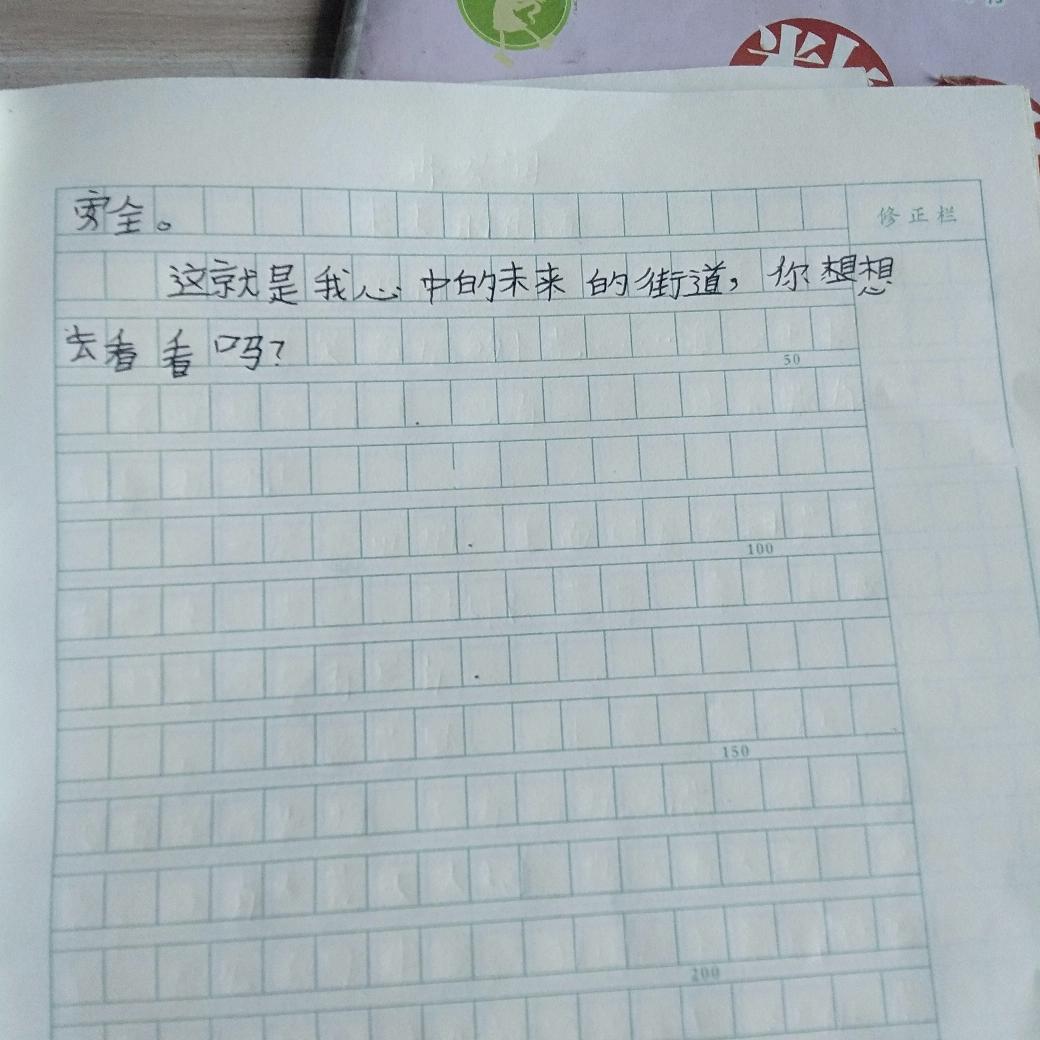 数
修正栏
安全。
这就是我心中的未来的街道，你想想
去看看吗？
50
100
150
200